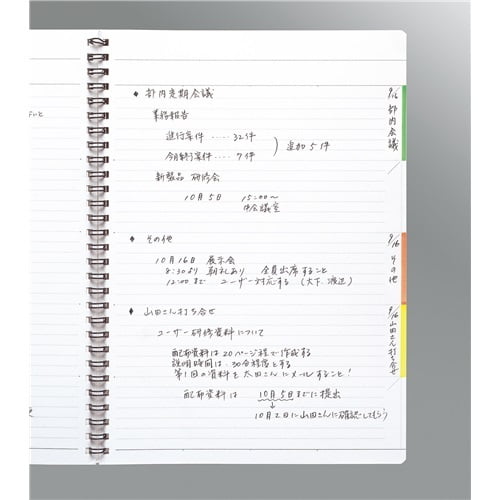 ◆ 部内定期会議
業務報告
進行案件 ‥‥ 32件
今月終了案件 ‥‥ 7件
追加5件
新製品 研修会
10月5日 15:00〜
中会議室
◆ その他
10月16日 展示会
8:30より 朝礼あり 全員出席すること
12:00まで ユーザー対応する (木下、渡辺)
◆ 山田さん打ち合せ
ユーザー研修資料について
配布資料は20ページ程で作成する
説明時間は30分程度とする
第1回の資料を太田さんにメールすること!
配布資料は 10月5日までに提出
↓
10月2日に山田さんに確認してもらう
9/16 部内会議
9/16 その他
9/16 山田さん打ち合せ